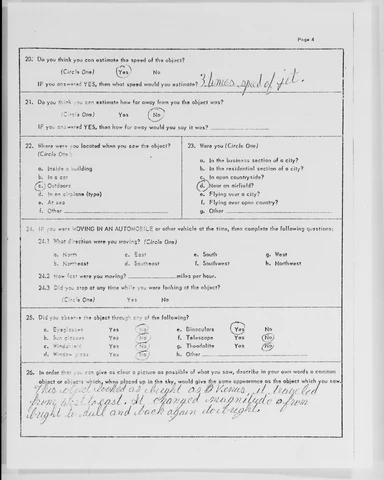 Page 4
20. Do you think you can estimate the speed of the object?
(Circle One) Yes No
IF you answered YES, then what speed would you estimate? 3 times speed of jet.
21. Do you think you can estimate how far away from you the object was?
(Circle One) Yes No
IF you answered YES, then how far away would you say it was?
22. Where were you located when you saw the object?
(Circle One)
a. Inside a building
b. In a car
c. Outdoors
d. In an airplane (type)
e. At sea
f. Other
23. Were you (Circle One)
a. In the business section of a city?
b. In the residential section of a city?
c. In open countryside?
d. Near an airfield?
e. Flying over a city?
f. Flying over open country?
g. Other
24. IF you were MOVING IN AN AUTOMOBILE or other vehicle at the time, then complete the following questions:
24.1 What direction were you moving? (Circle One)
a. North c. East e. South g. West
b. Northeast d. Southeast f. Southwest h. Northwest
24.2 How fast were you moving? miles per hour.
24.3 Did you stop at any time while you were looking at the object?
(Circle One) Yes No
25. Did you observe the object through any of the following?
a. Eyeglasses Yes No e. Binoculars Yes No
b. Sun glasses Yes No f. Telescope Yes No
c. Windshield Yes No g. Theodolite Yes No
d. Window glass Yes No h. Other
26. In order that you can give as clear a picture as possible of what you saw, describe in your own words a common
object or objects which, when placed up in the sky, would give the same appearance as the object which you saw.
This object looked as bright as Venus, it traveled
from West to east. It changed magnitude from
bright to dull and back again to bright.